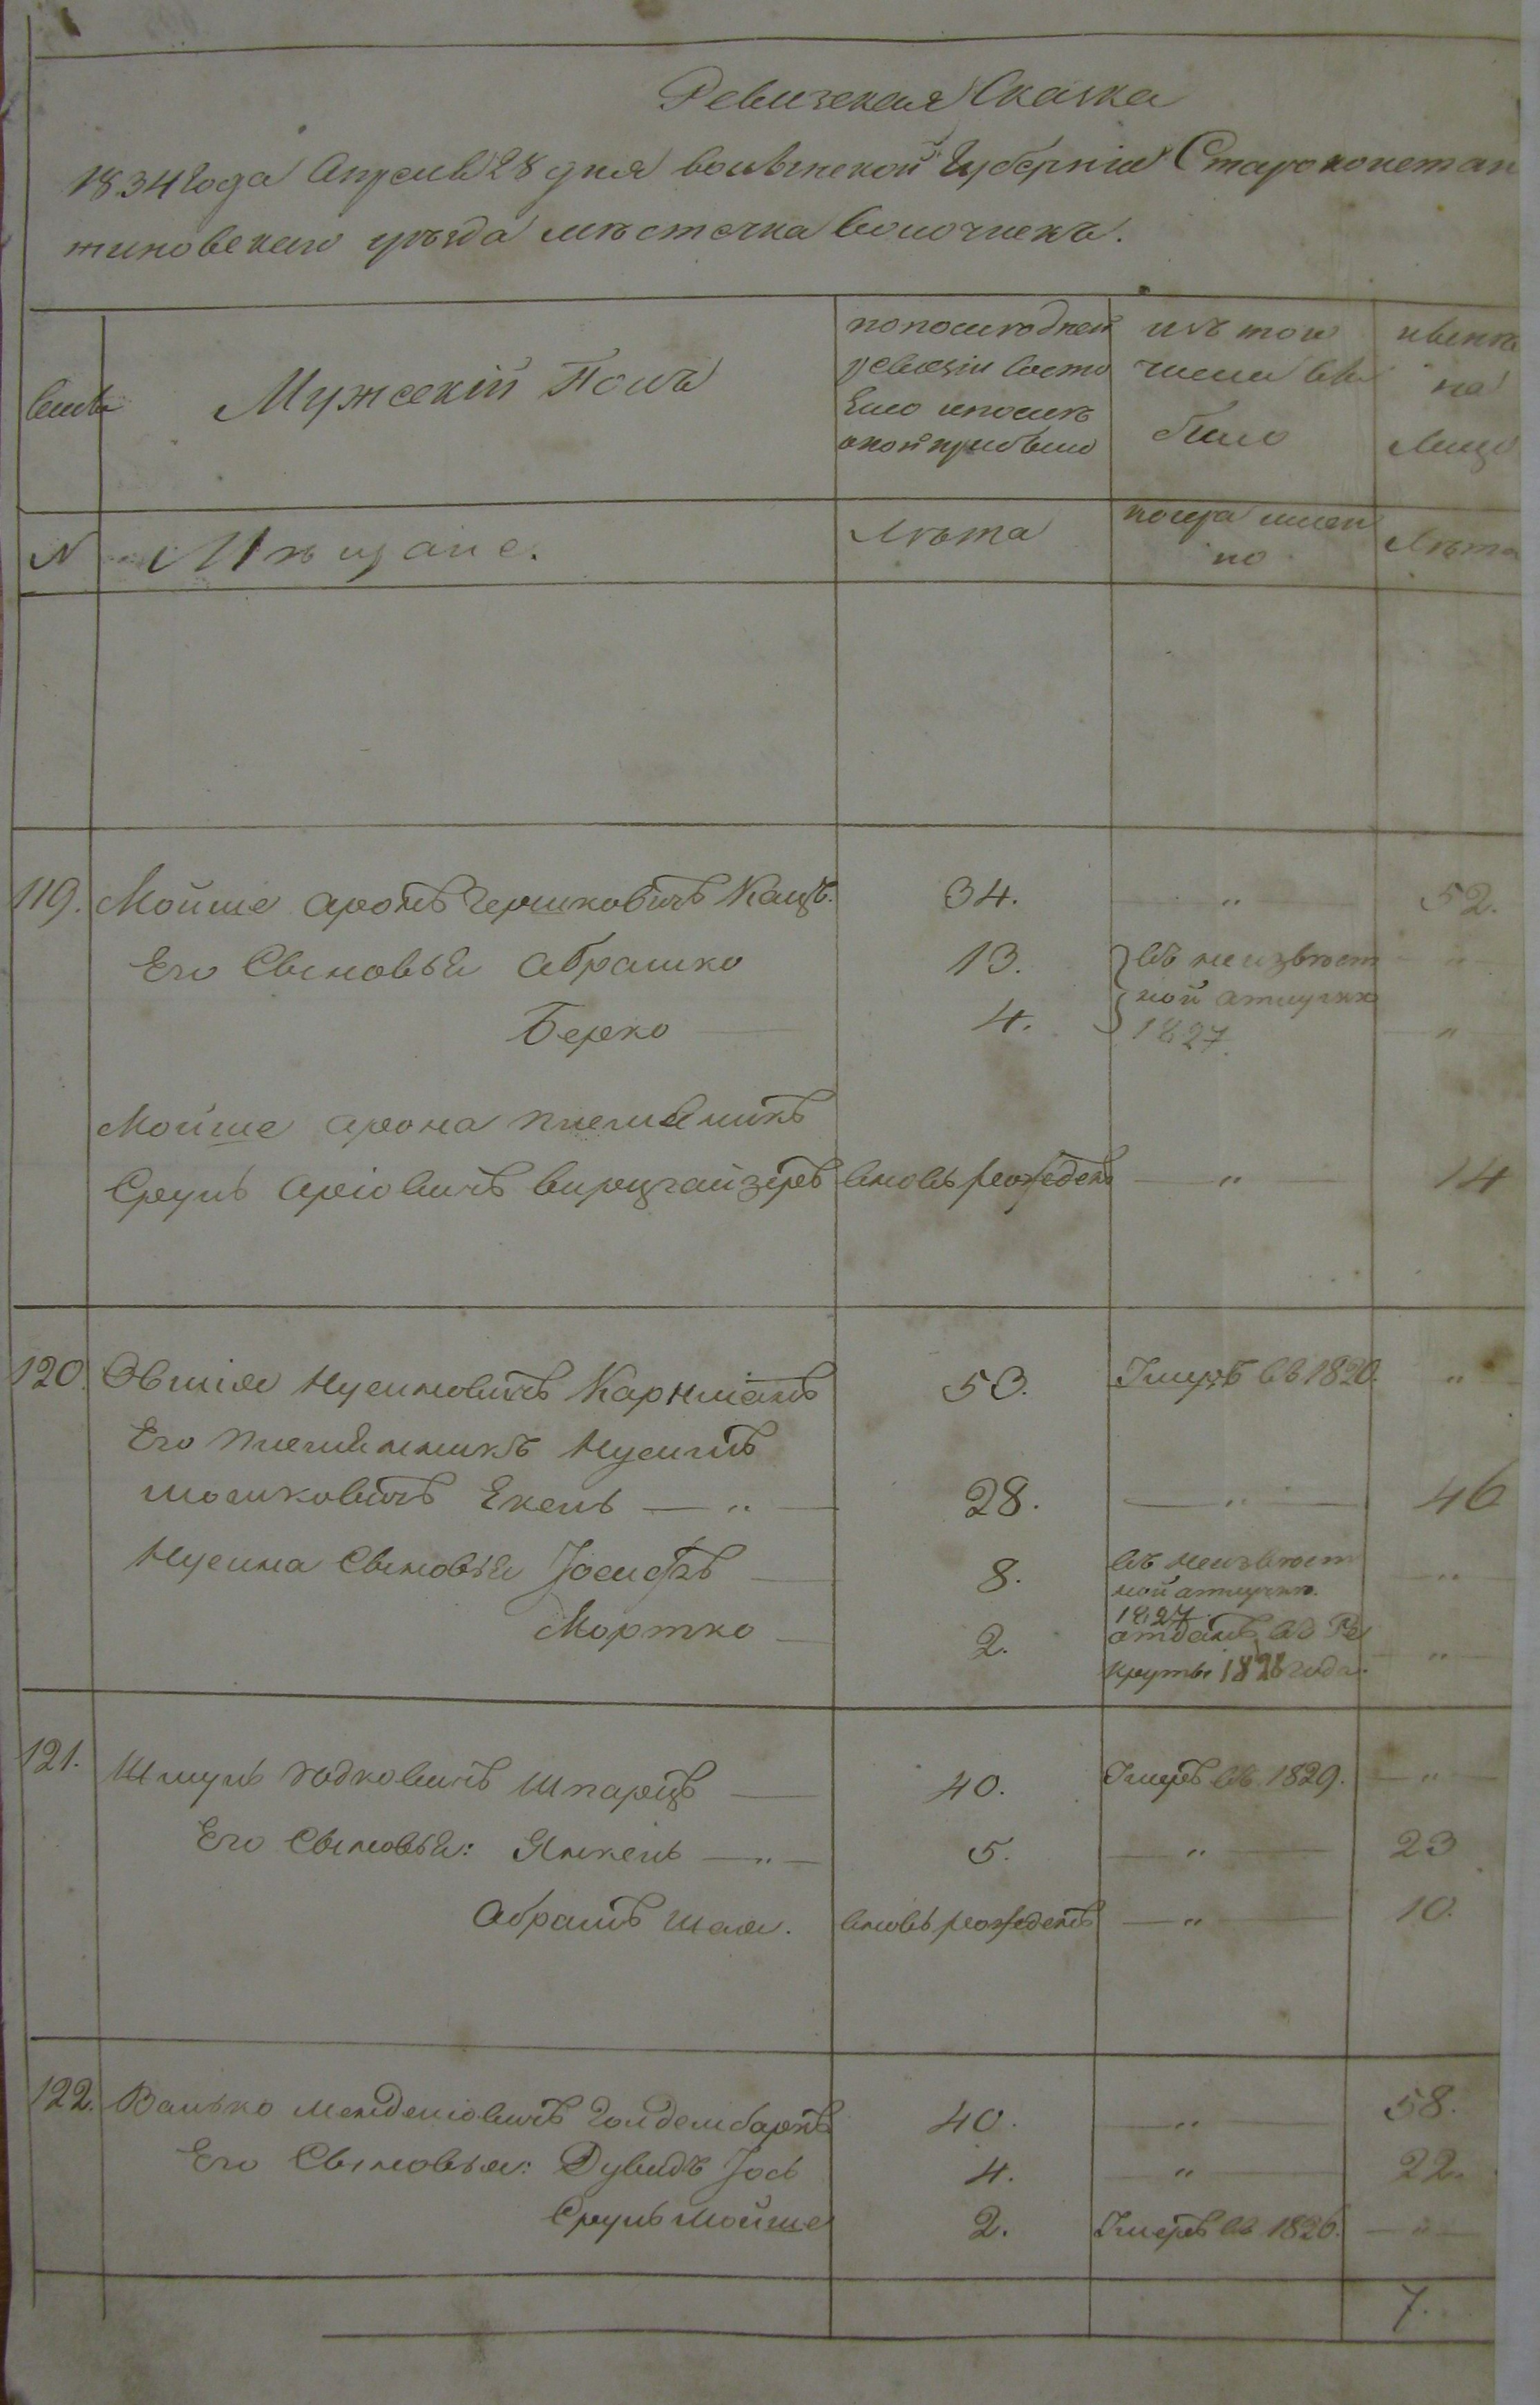 Ревизская Сказка
1834 года Апреля 28 дня волынской Губерніи Староконстан
тиновскаго уѣзда мѣстечка волочискъ.
Семья
Мужескій Полъ
по последней
ревизіи состо
яло и после
оной прибыло
изъ того
числа вы
было
нынѣ
на
Лицо
N
Мѣщане.
Лѣта
когда имен
но
Лѣта
119. Мойше Аронъ Гершковичъ Кацъ. 34. — " — 52.
Его Сыновья Абрашко 13. въ неизвест — " —
Берко — 4. ной отлучке — " —
1827.
Мойше Арона племяникъ
Сруль Аріовичъ вновь рожденъ — " — 14
120. Овшія Нусиновичъ Карнманъ 53. Умеръ въ 1820. "
Его племянникъ Нусинъ
мошковичъ Екель — " — 28. — " — 46
Нусина Сыновья Іосифъ — 8. въ неизвест
ной отлучке — " —
1827
Мортко — 2. отданъ въ Ре
круты 1828 года. — " —
121. Шмуль Юдковичъ Шпарцъ — 40. Умеръ въ 1829. — " —
Его Сыновья: Янкель — " — 5. — " — 23
Абрамъ Шая. вновь рожденъ — " — 10.
122. Валько Менделіовичъ 40. — " — 58.
Его Сыновья: Дувидъ Іось 4. — " — 22.
Сруль Мойше 2. Умеръ въ 1826. — " —
7.